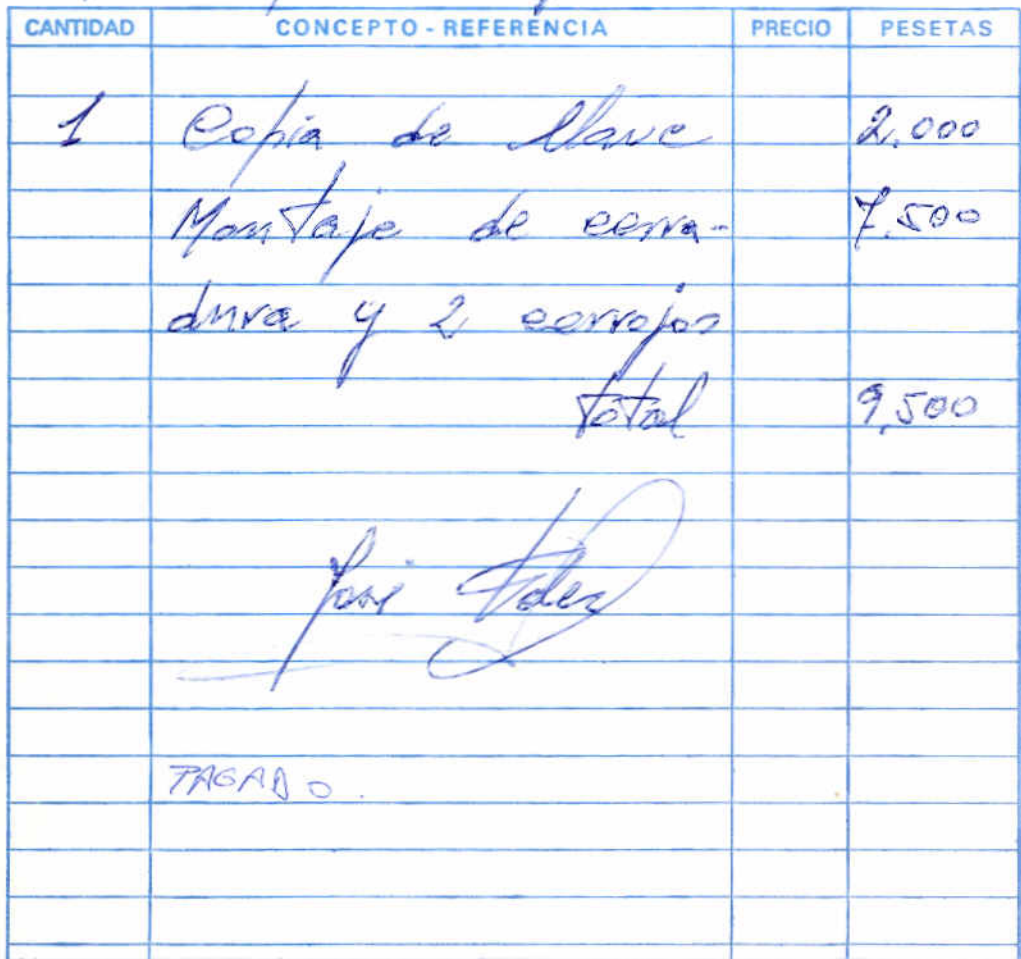 CANTIDAD CONCEPTO - REFERENCIA PRECIO PESETAS
1 Copia de llave 2.000
Montaje de cerra- 7.500
dura y 2 cerrojos
total 9,500
José
PAGADO.